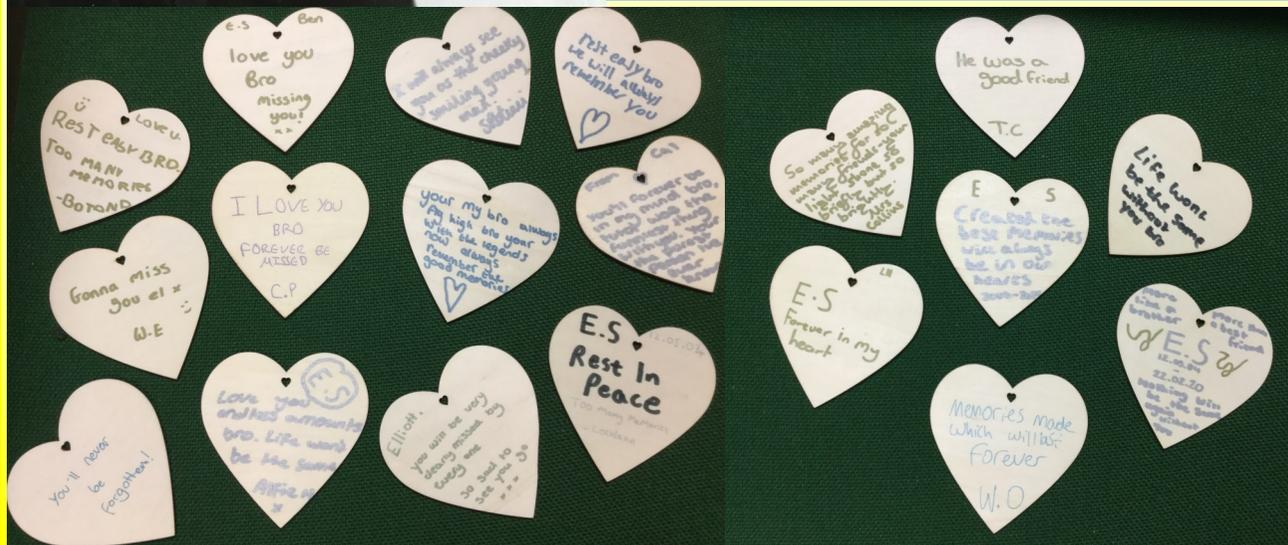 E.S Ben
love you
Bro
missing
you!
xx
I will always see
you as the cheeky
smiling young
rest easy bro
we will always
remember you
Love u.
REST EASY BRO.
TOO MANY
MEMORIES
-BOTOND
I LOVE YOU
BRO
FOREVER BE
MISSED
C.P
your my bro always
fly high bro your
with the legends
now always
remember the
good memories
From Cal
You'll forever be
in my mind bro.
Gonna miss
you el x
W.E
E.S 12.05.04
Rest In
Peace
Too many memories
- Lochlann
Love you
endless amounts
bro. Life won't
be the same
Alfie
x
E.S
Elliott.
you will be very
dearly missed by
every one
so sad to
see you go
xxx
you'll never
be
forgotten!
He was a
good friend
T.C
So many amazing
memories for so
many friends - your
light shone so
bright
Mrs
Collins
E S
Created the
best Memories
will always
be in our
hearts
Life wont
be the same
without
you bro
E.S
Forever in my
heart
More
like a
brother
More than
a best
friend
E.S
12.05.04
-
22.02.20
Nothing will
be the same
again without
you
Memories made
which will last
Forever
W.O